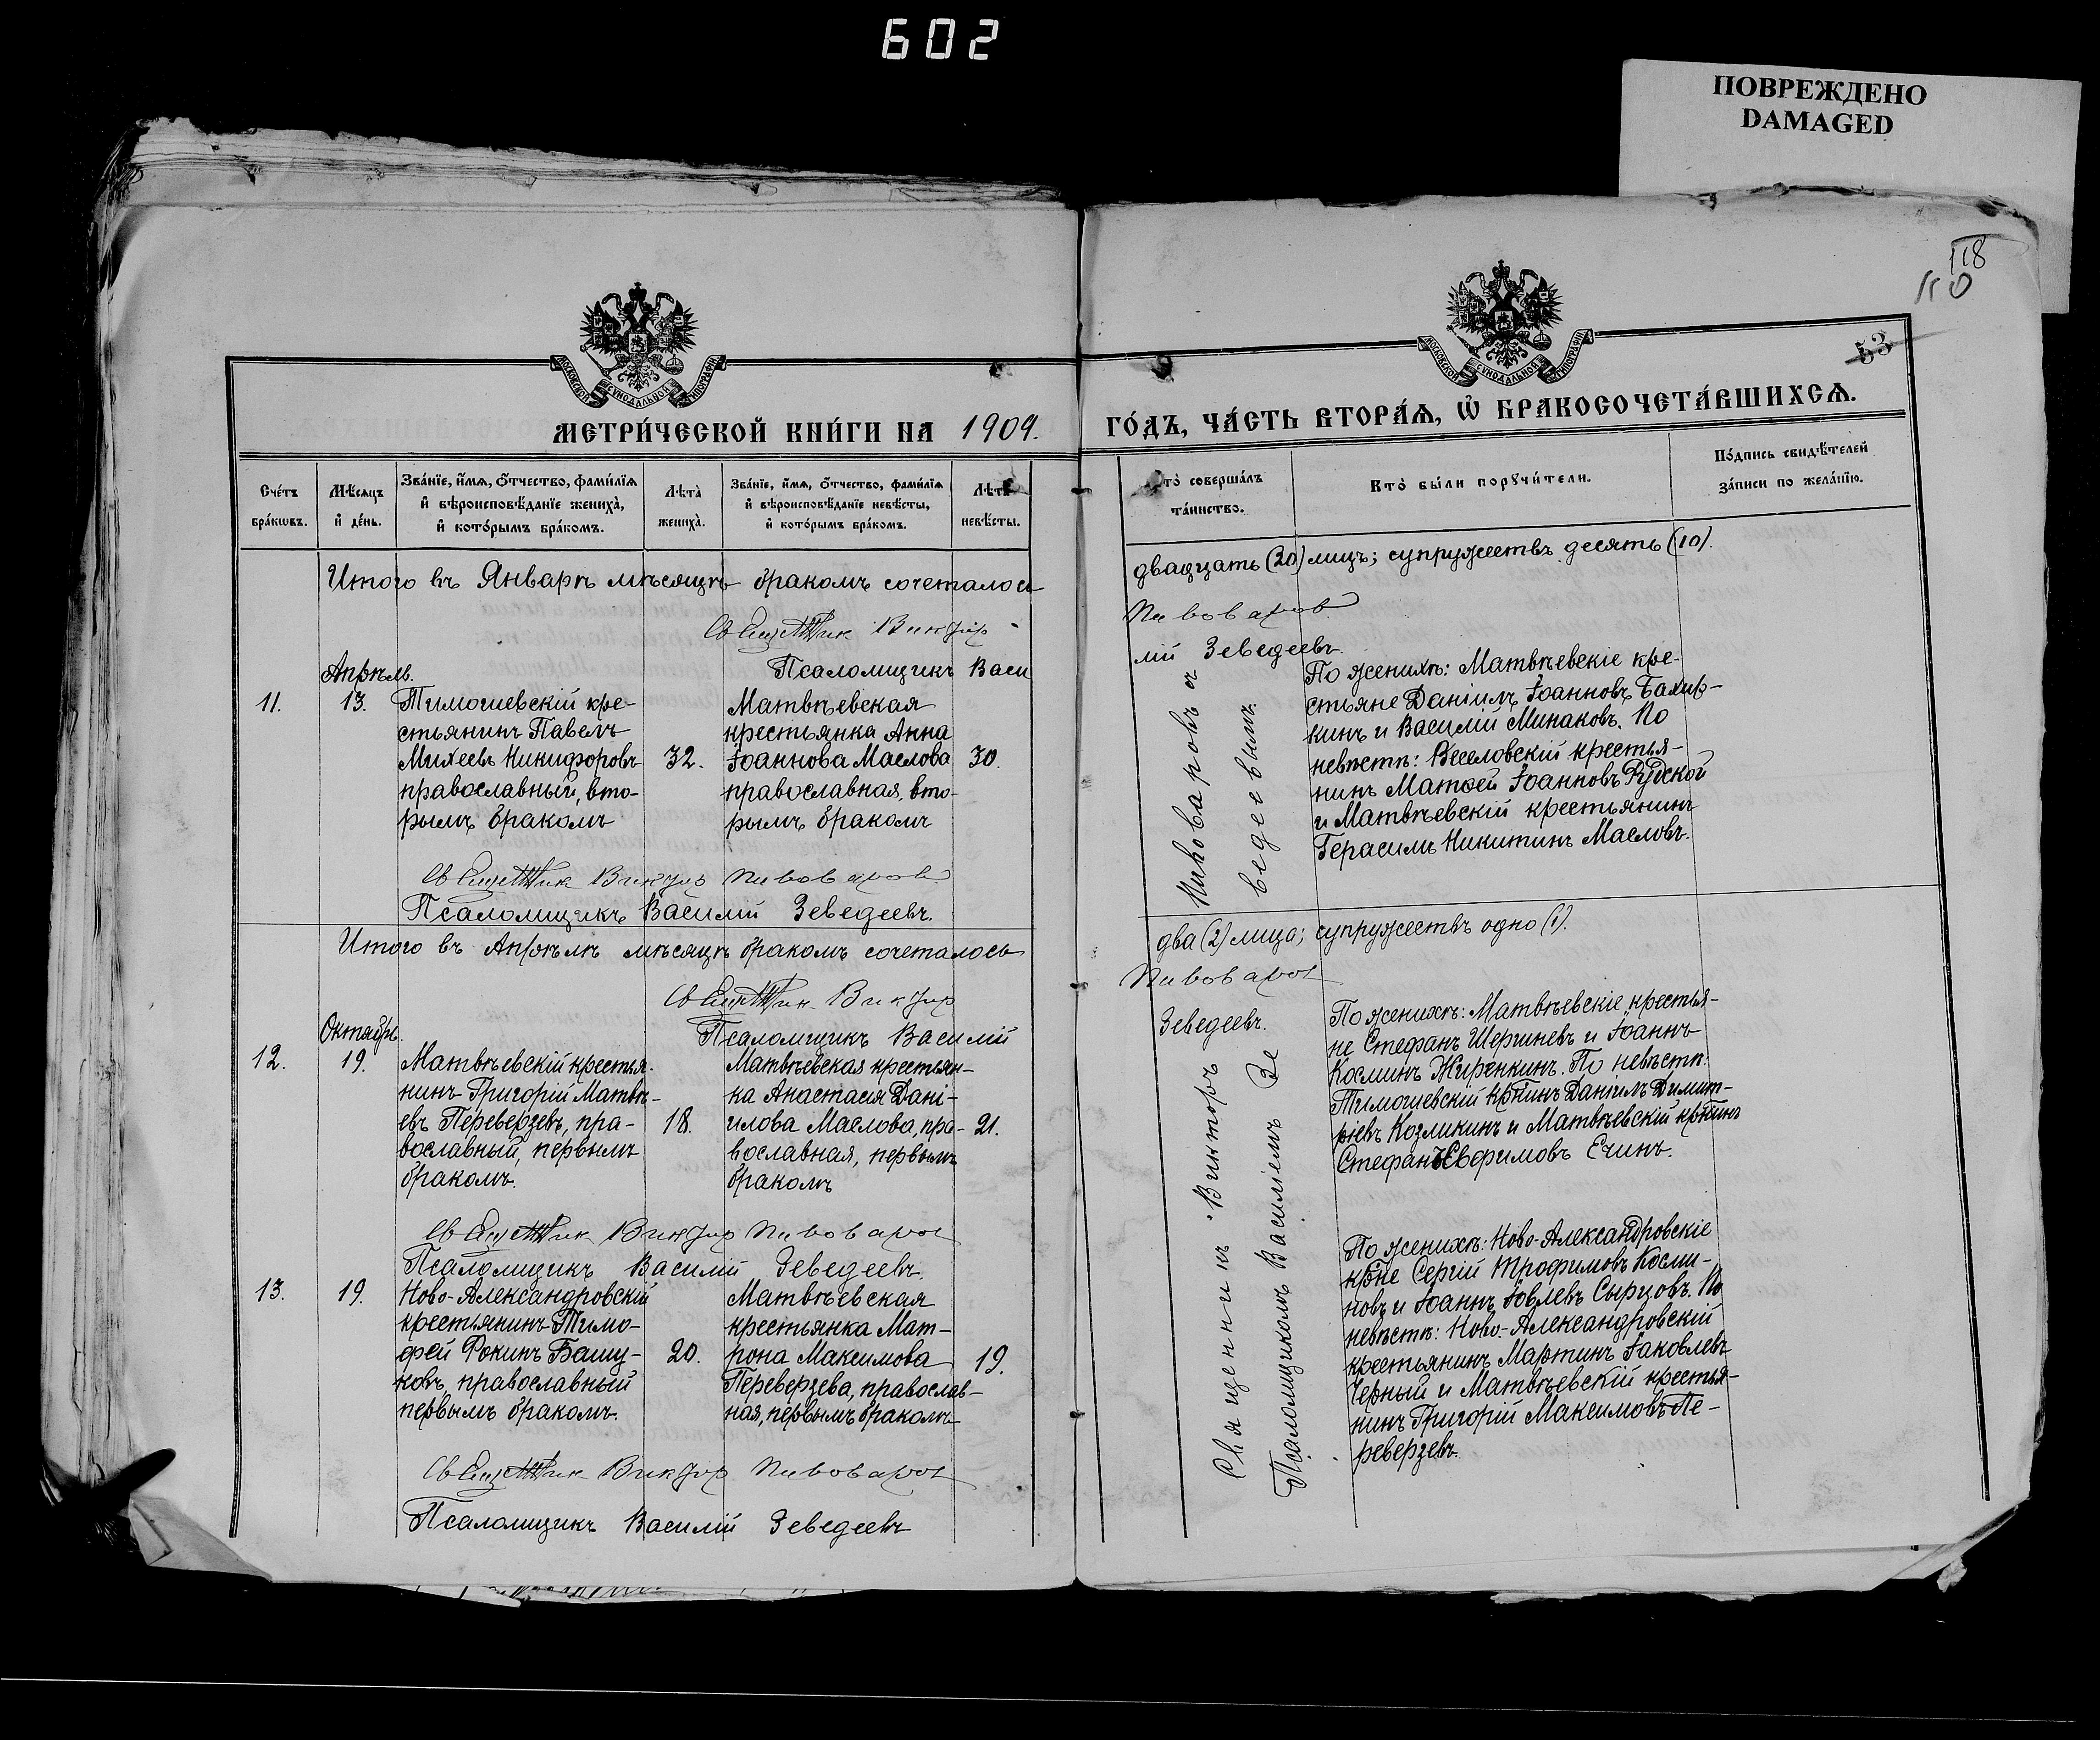 602
ПОВРЕЖДЕНО
DAMAGED
118
53
МОСКОВСКОЙ СѴНОДАЛЬНОЙ ТИПОГРАФІИ
МОСКОВСКОЙ СѴНОДАЛЬНОЙ ТИПОГРАФІИ
МЕТРИ́ЧЕСКОЙ КНИ́ГИ НА 1909.
ГО́ДЪ, ЧА́СТЬ ВТОРА́Ѧ, Ѿ БРАКОСОЧЕТА́ВШИХСѦ.
Сче́тъ бра́кѡвъ.
Мѣ́сѧцъ и҆ де́нь.
Зва́нїе, и҆́мѧ, ѻ҆́тчество, фами́лїѧ и҆ вѣроисповѣ́данїе жениха̀, и҆ кото́рымъ бра́комъ.
Лѣта̀ жениха̀.
Зва́нїе, и҆́мѧ, ѻ҆́тчество, фами́лїѧ и҆ вѣроисповѣ́данїе невѣ́сты, и҆ кото́рымъ бра́комъ.
Лѣта̀ невѣ́сты.
то̀ соверша́лъ та́инство.
Кто̀ бы́ли порꙋчи́тели.
По́дпись свидѣ́телей за́писи по жела́нїю.
Итого въ Январѣ мѣсяцѣ бракомъ сочеталось
двадцать (20) лицъ; супружествъ десять (10).
Священник Виктор
Пивоваров
Псаломщикъ Васи
лій Зеведеевъ.
Апрѣль.
11.
13.
Тимошевскій кре-
стьянинъ Павелъ
Михеевъ Никифоровъ
православный, вто-
рымъ бракомъ
32.
Матвѣевская
крестьянка Анна
Іоаннова Маслова
православная, вто-
рымъ бракомъ
30.
По женихѣ: Матвѣевскіе кре-
стьяне Даніилъ Іоанновъ
кинъ и Василій Минаковъ. По
невѣстѣ: Веселовскій крестья-
нинъ Матѳей Іоанновъ Рудской
и Матвѣевскій крестьянинъ
Герасимъ Никитинъ Масловъ.
Священник Виктор Пивоваров
Псаломщикъ Василій Зеведеевъ.
Итого въ Апрѣлѣ мѣсяцѣ бракомъ сочеталось
два (2) лица; супружествъ одно (1).
Священник Виктор
Пивоваров
Псаломщикъ Василій
Зеведеевъ.
Октябрь.
12.
19.
Матвѣевскій крестья-
нинъ Григорій Матвѣ-
евъ Переверзевъ, пра-
вославный, первымъ
бракомъ.
18.
Матвѣевская крестьян-
ка Анастасія Дані-
илова Маслова, пра-
вославная, первымъ
бракомъ
21.
По женихѣ: Матвѣевскіе крестья-
не Стефанъ Шершневъ и Іоаннъ
Косминъ Жиренкинъ. По невѣстѣ:
Тимошевскій кр̃нинъ Даніилъ Димит-
ріевъ Козликинъ и Матвѣевскій кр̃нинъ
Стефанъ Евфимовъ Ечинъ.
Священник Виктор Пивоваров
Псаломщикъ Василій Зеведеевъ.
13.
19.
Ново-Александровскій
крестьянинъ Тимо-
фей Фокинъ Башу-
ковъ, православный
первымъ бракомъ.
20.
Матвѣевская
крестьянка Мат-
рона Максимова
Переверзева, православ-
ная, первымъ бракомъ
19.
По женихѣ: Ново-Александровскіе
кр̃не Сергій Трофимовъ Косми-
новъ и Іоаннъ Іовлевъ Сырцовъ. По
невѣстѣ: Ново-Александровскій
крестьянинъ Мартинъ Іаковлевъ
Черный и Матвѣевскій крестья-
нинъ Григорій Максимовъ Пе-
реверзевъ.
Священник Виктор Пивоваров
Псаломщикъ Василій Зеведеевъ
Священникъ Викторъ Пивоваровъ съ
Псаломщикомъ Василіемъ Зеведеевымъ.